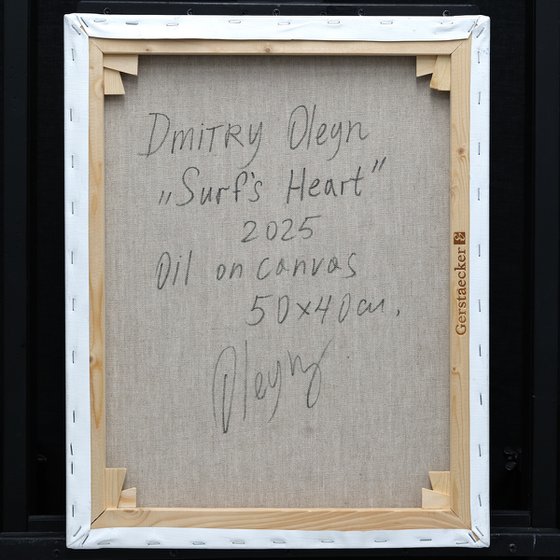 Dmitry Oleyn
„Surf's Heart"
2025
Oil on canvas
50x40cm.
Oleyn
Gerstaecker